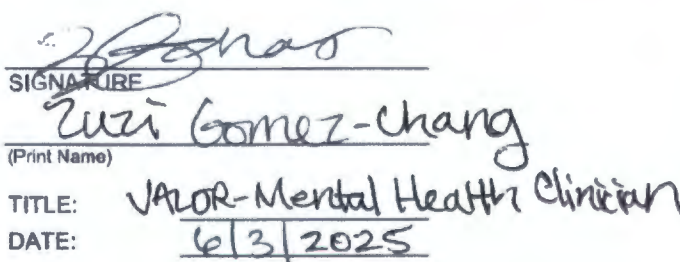 SIGNATURE
Zuzi Gomez-Chang
(Print Name)
TITLE: VALOR-Mental Health Clinician
DATE: 6|3|2025